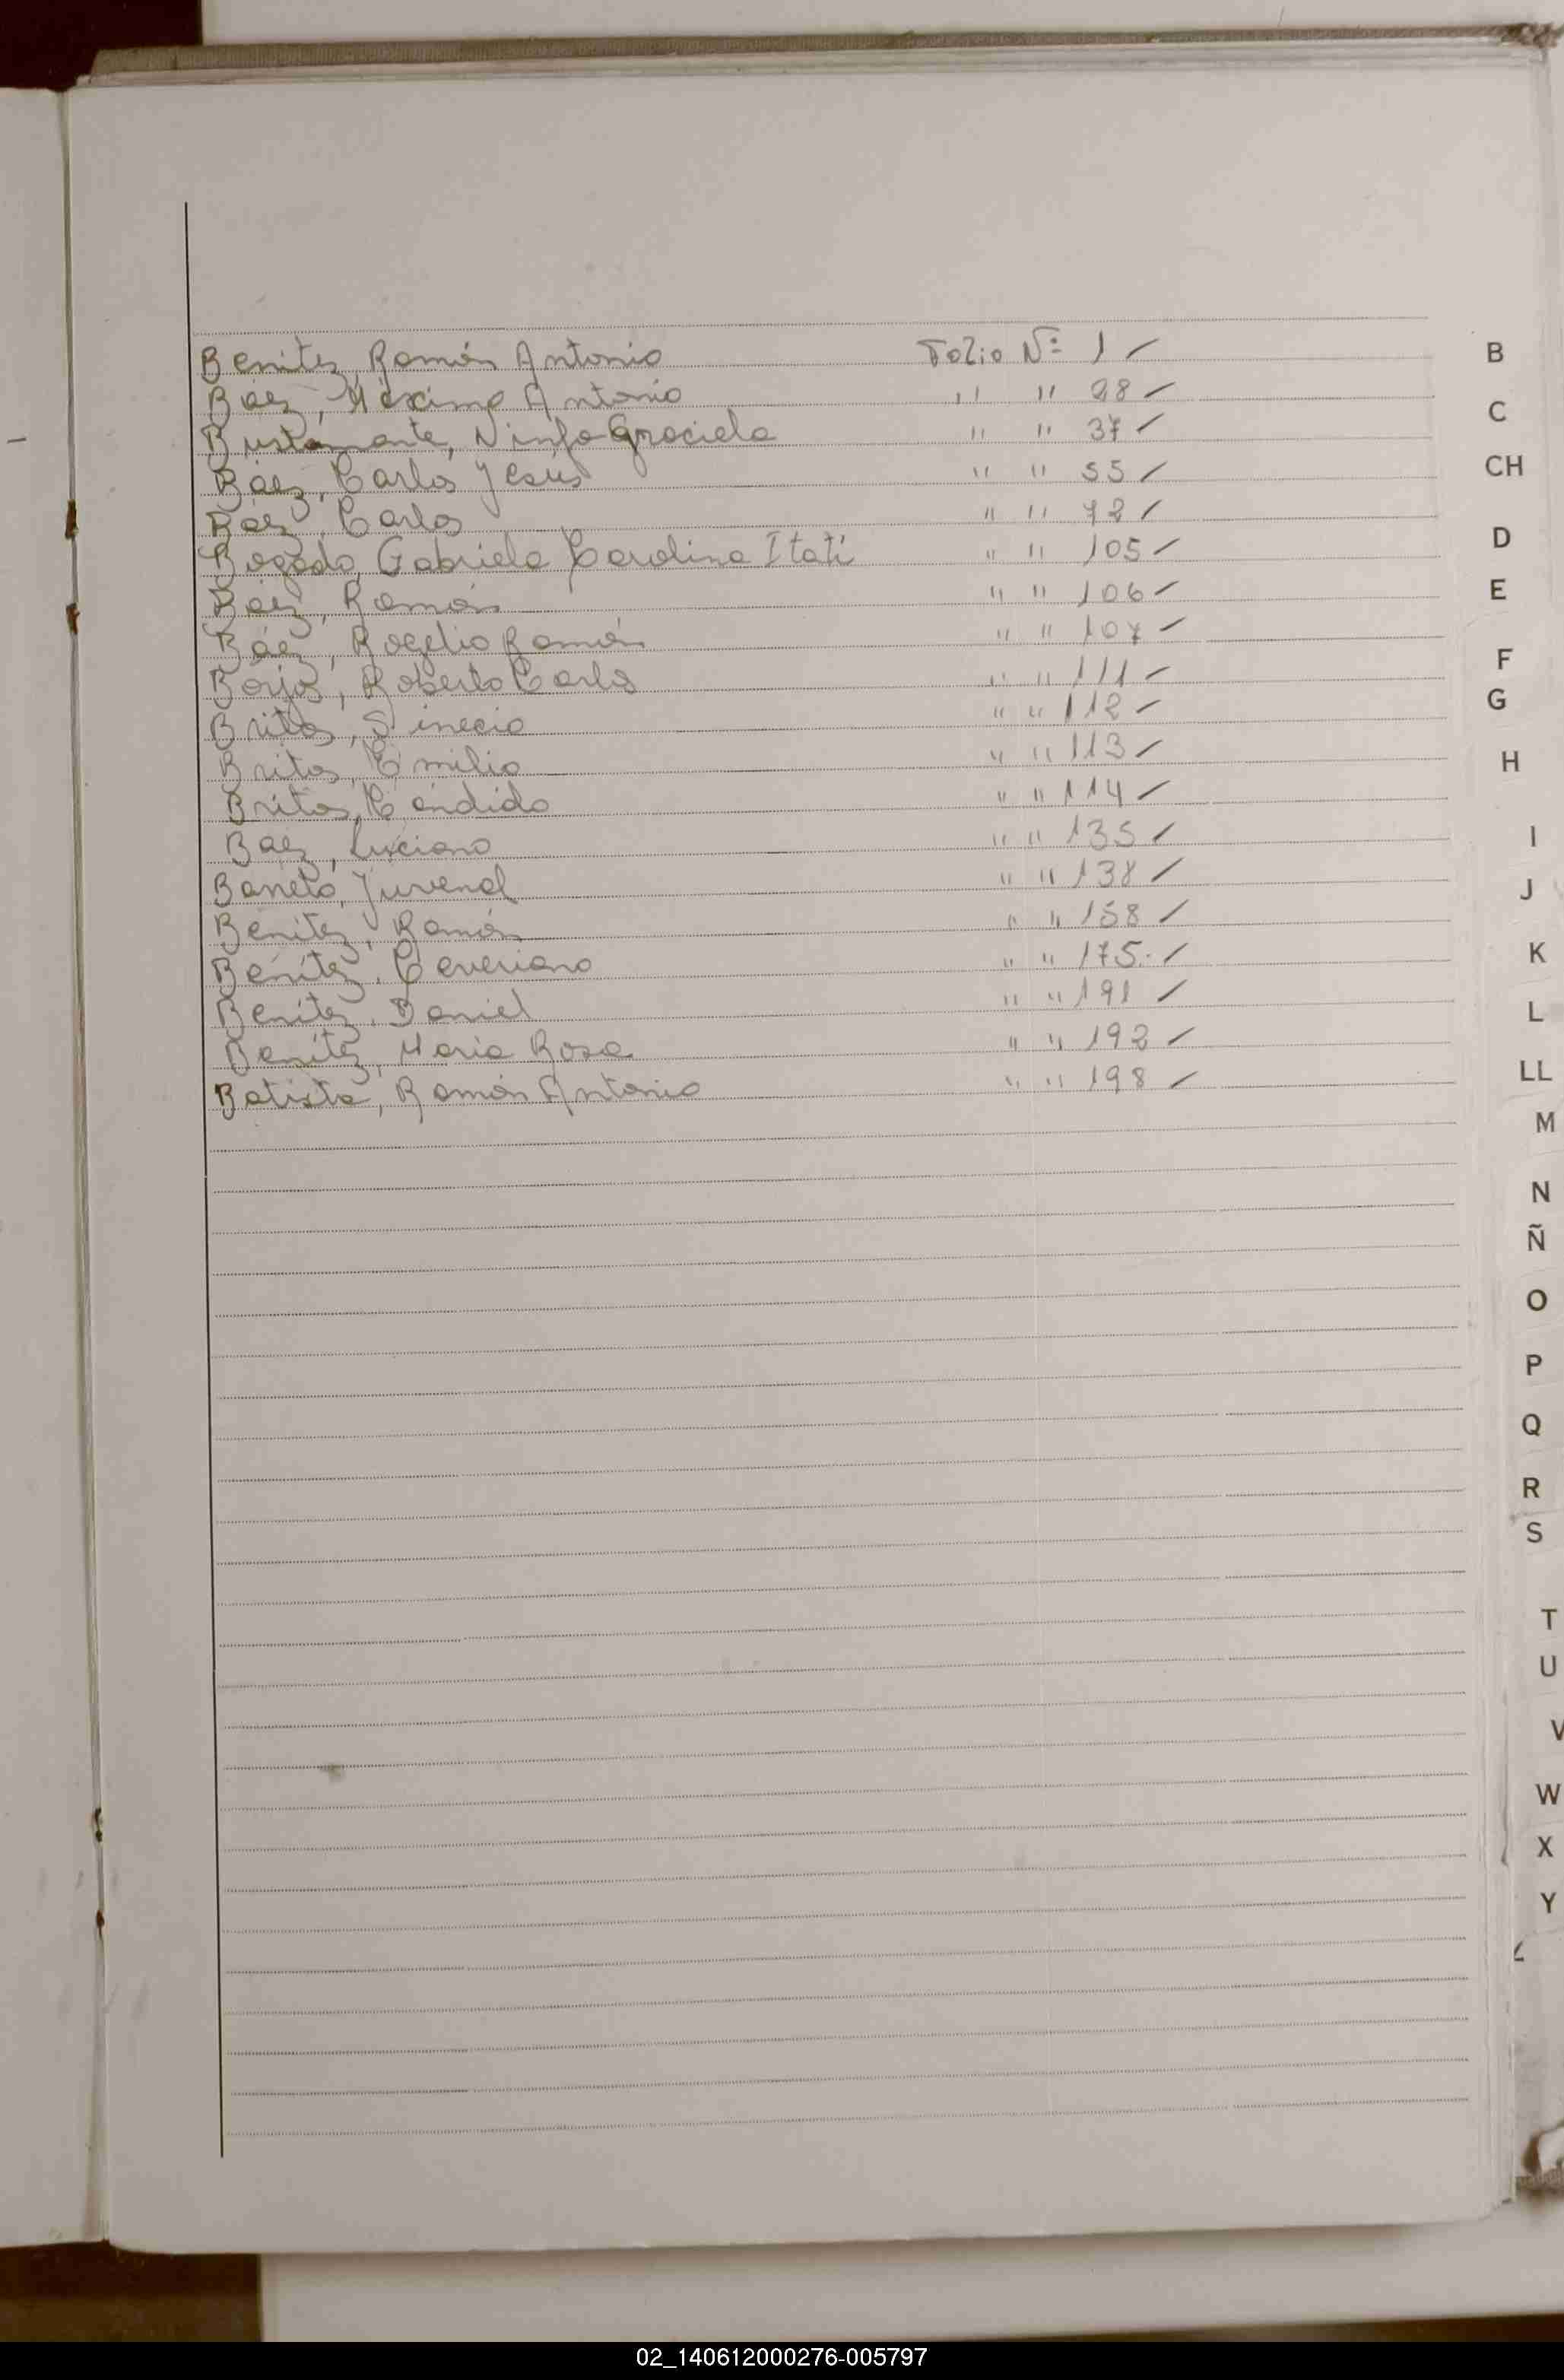 Benitez, Ramón Antonio Folio Nº 1 ✓
Báez, Máximo Antonio " " 28 ✓
Bustamante, Ninfa Graciela " " 37 ✓
Báez, Carlos Jesús " " 55 ✓
Báez, Carlos " " 72 ✓
Bogado, Gabriela Carolina Itatí " " 105 ✓
Báez, Ramón " " 106 ✓
Báez, Rogelio Ramón " " 107 ✓
Borjas, Roberto Carlos " " 111 ✓
Britos, Sinecio " " 112 ✓
Britos, Emilio " " 113 ✓
Britos, Cándido " " 114 ✓
Báez, Luciano " " 135 ✓
Barreto, Juvenal " " 138 ✓
Benítez, Ramón " " 158 ✓
Benítez, Ceveriano " " 175.- ✓
Benítez, Daniel " " 191 ✓
Benítez, Maria Rosa " " 192 ✓
Batista, Ramón Antonio " " 198 ✓
B
C
CH
D
E
F
G
H
I
J
K
L
LL
M
N
Ñ
O
P
Q
R
S
T
U
V
W
X
Y
02_140612000276-005797